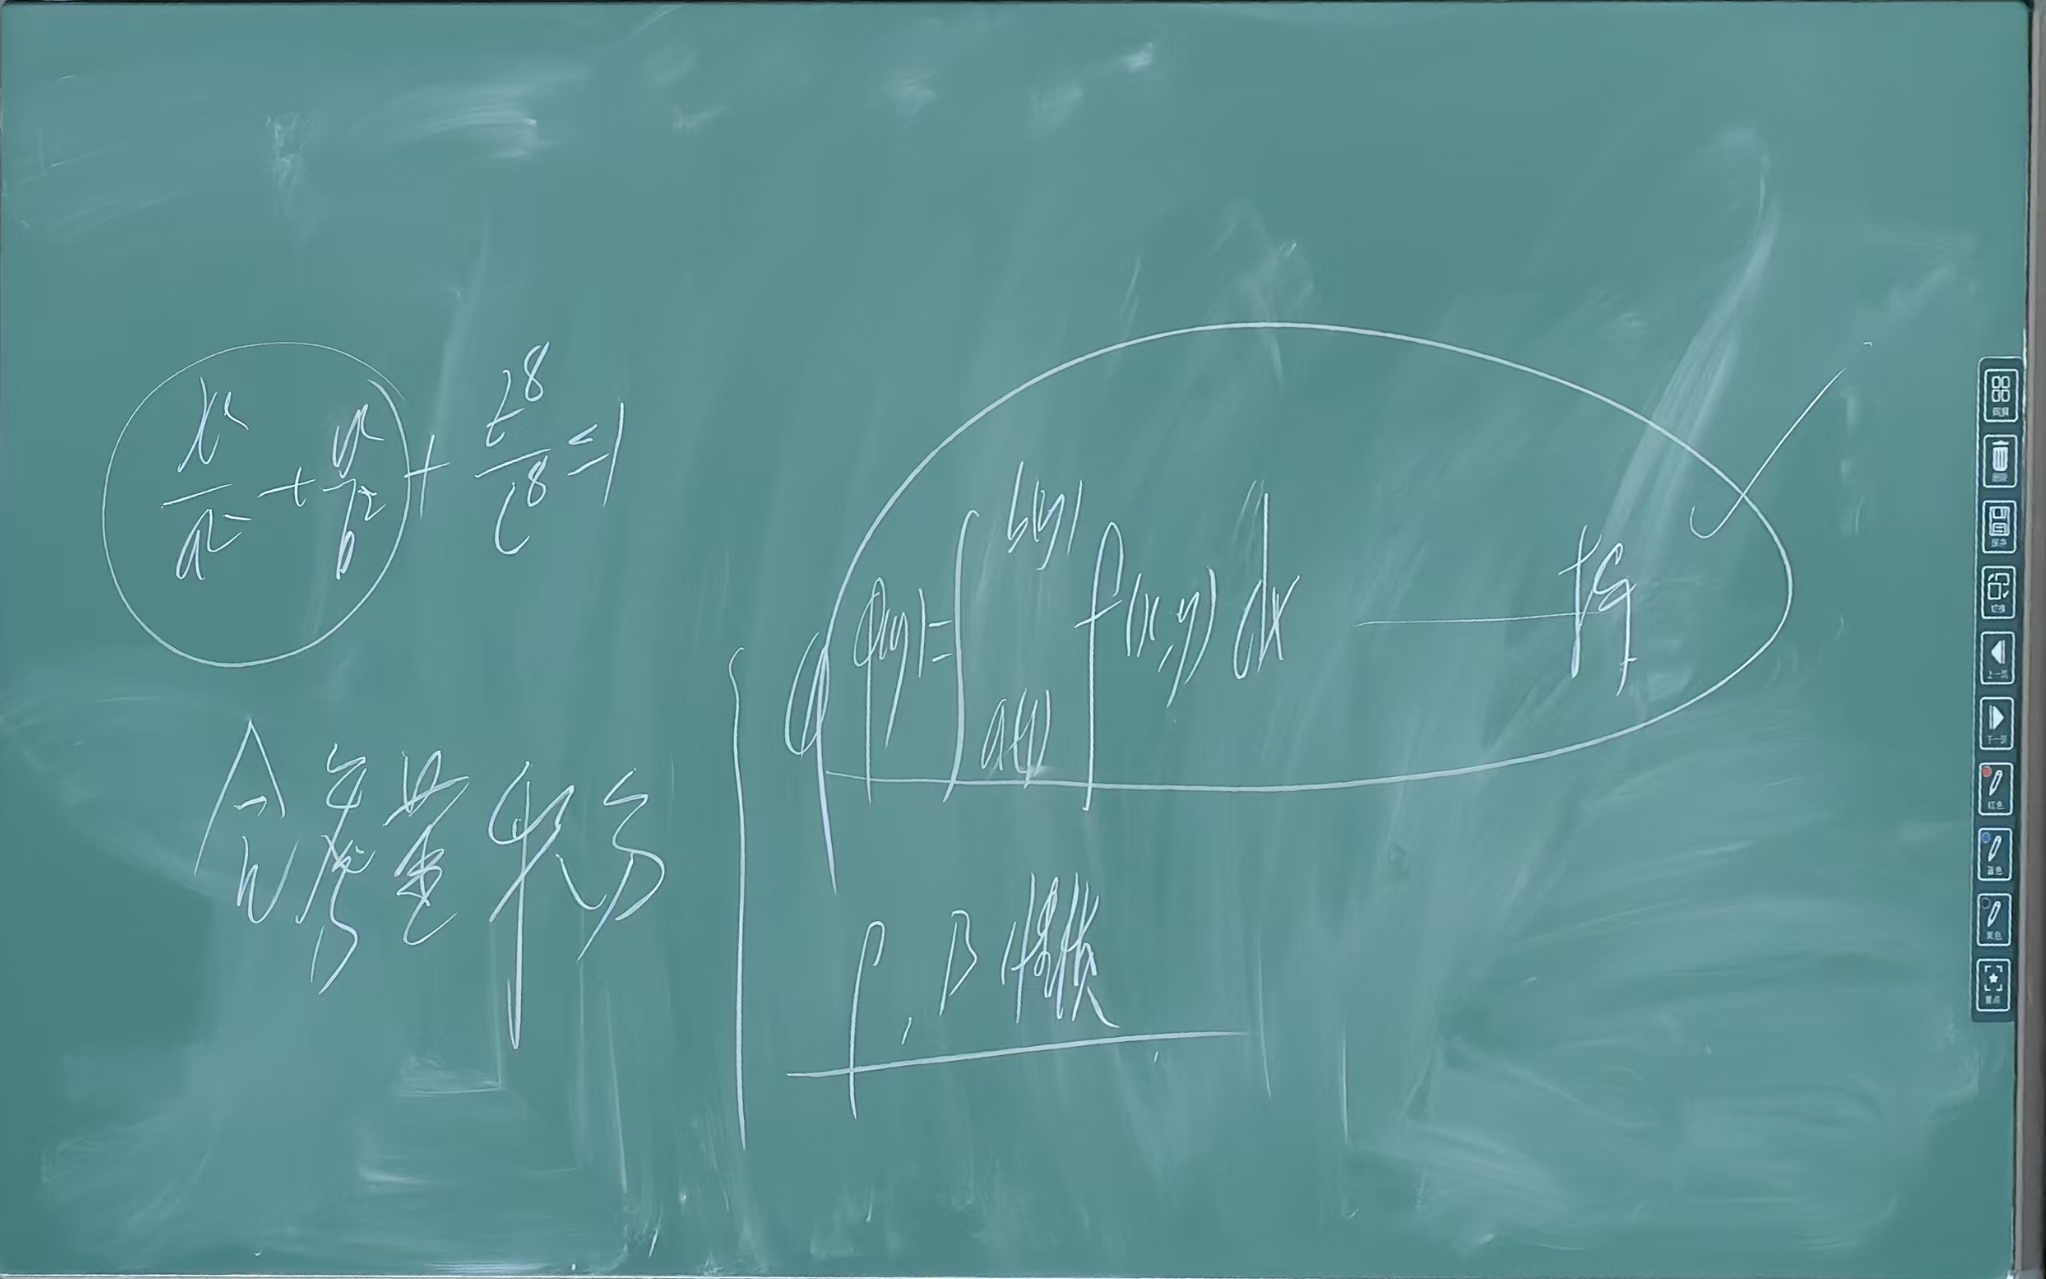 x²/a² + y²/b² + z⁸/c⁸ = 1
含参量积分
φ(y) = ∫_{a(y)}^{b(y)} f(x,y) dx
Γ, B 函数
删除
保存
上一页
下一页
红色
蓝色
黑色